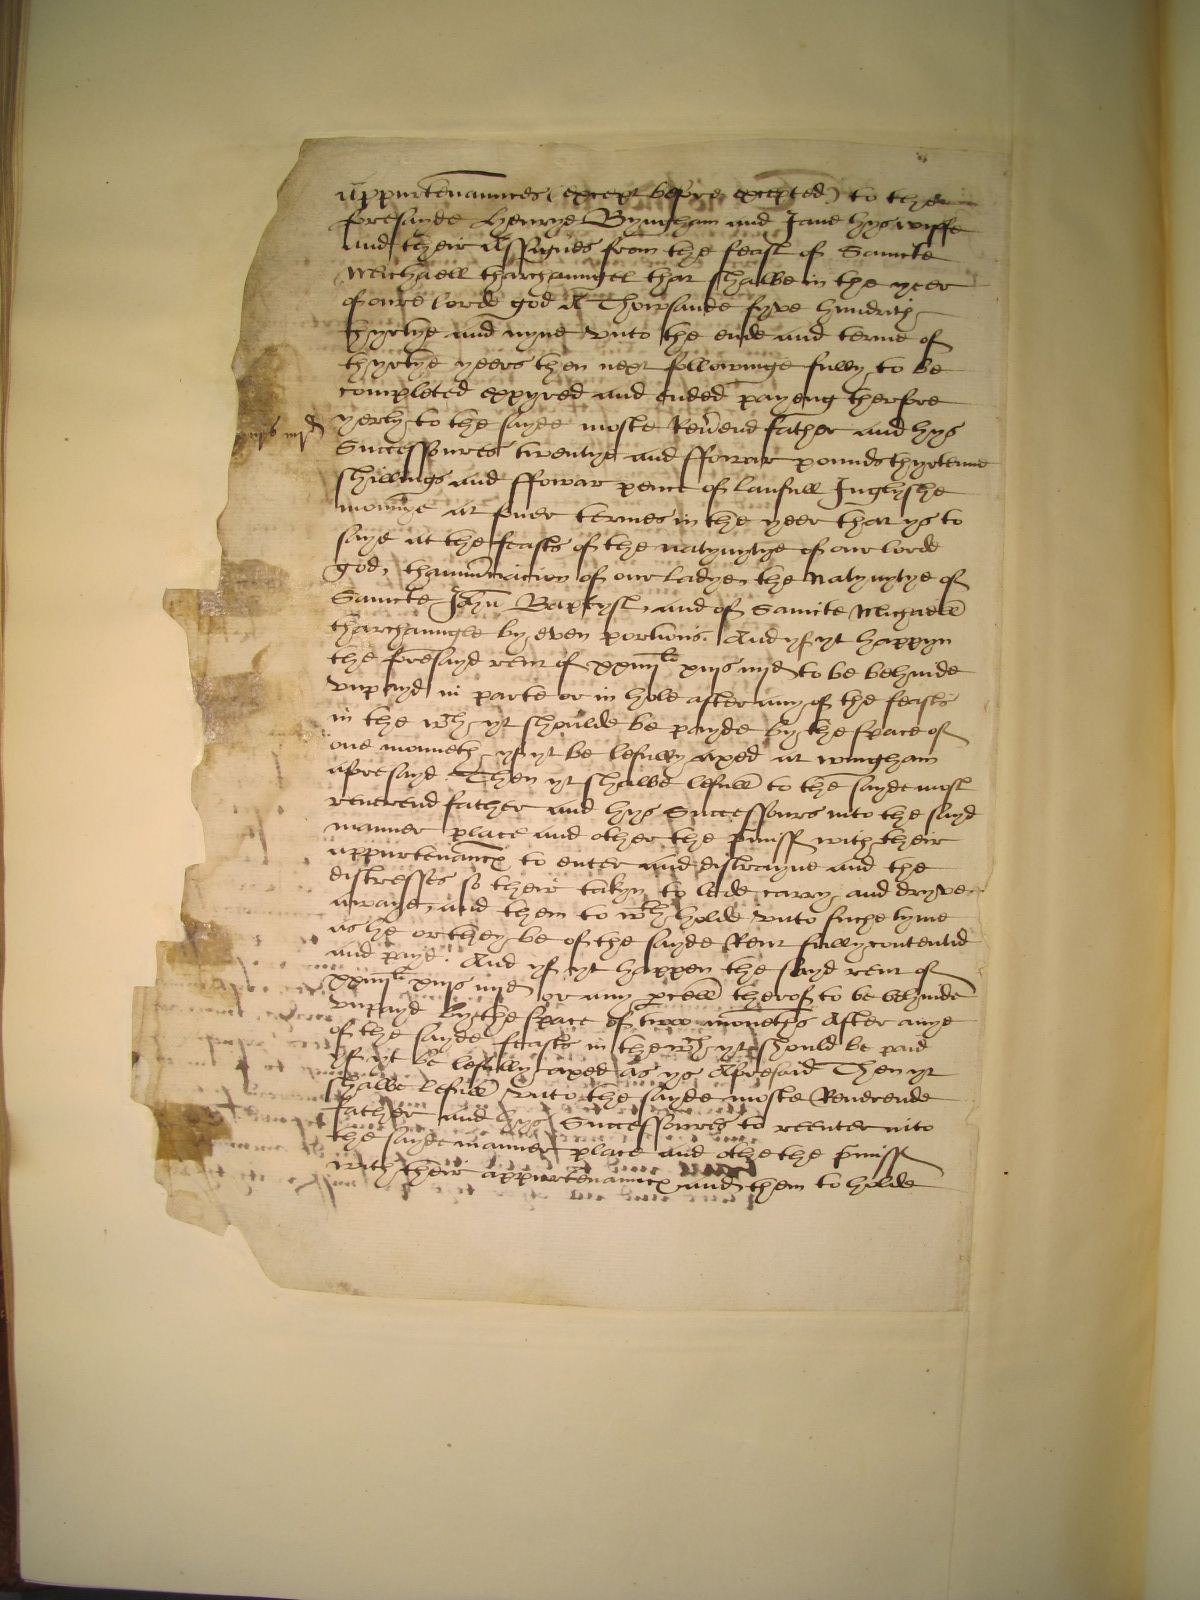 appurtenaunces (except before excepted) to the
foresayde Henrye Byngham and Jane hys wyffe
and their Assignes from the feast of Saincte
Michaell tharchaungel that shalbe in the yeer
of oure lorde god A Thowsande fyve hundrith
thyrtye and nyne vnto the ende and terme of
thyrtye yeers then next followinge fully to be
completed expyred and ended payeng therfore
yerly to the sayde moste Reuerend father and hys
Successoures twentye and ffowar pounds thyrtenne
shillings and ffowar pence of laufull Inglyshe
monnye at fouer termes in the yeer that ys to
saye at the feasts of the natyvytye of our lorde
god, thannuciacion of our Ladye, the Natyvytye of
Saincte John Baptyst, and of Saincte Michaell
tharchaungle by even portions. And yf yt happyn
the foresayd rent of xxiiijli xiijs iiijd to be behinde
vnpayd in parte or in hole after any of the feasts
in the wch yt shoulde be payde by the space of
one monneth yf yt be lefully axed at wingham
aforesayd Then yt shalbe lefull to the sayde most
reuerend father and hys Successours into the sayd
manner place and other the pmiss with their
appurtenancs to enter and distrayne and the
distresses so their takyn to lede carry and dryve
awaye, and them to wth holde vnto suche tyme
as he or they be of the sayde Rent fully contentid
and payd. And yf yt happen the sayd rent of
xxiiijli xiijs iiijd or any pcell therof to be behinde
vnpayd by the space of two moneths After anye
of the sayde feasts in the wch yt should be paid
yf yt be lefully axed as ys Aforesaid Then yt
shalbe lefull vnto the sayde moste Reuerende
father and hys Successoures to reenter into
the sayde manner place and othe the pmiss
with their appurtenauncs and them to holde